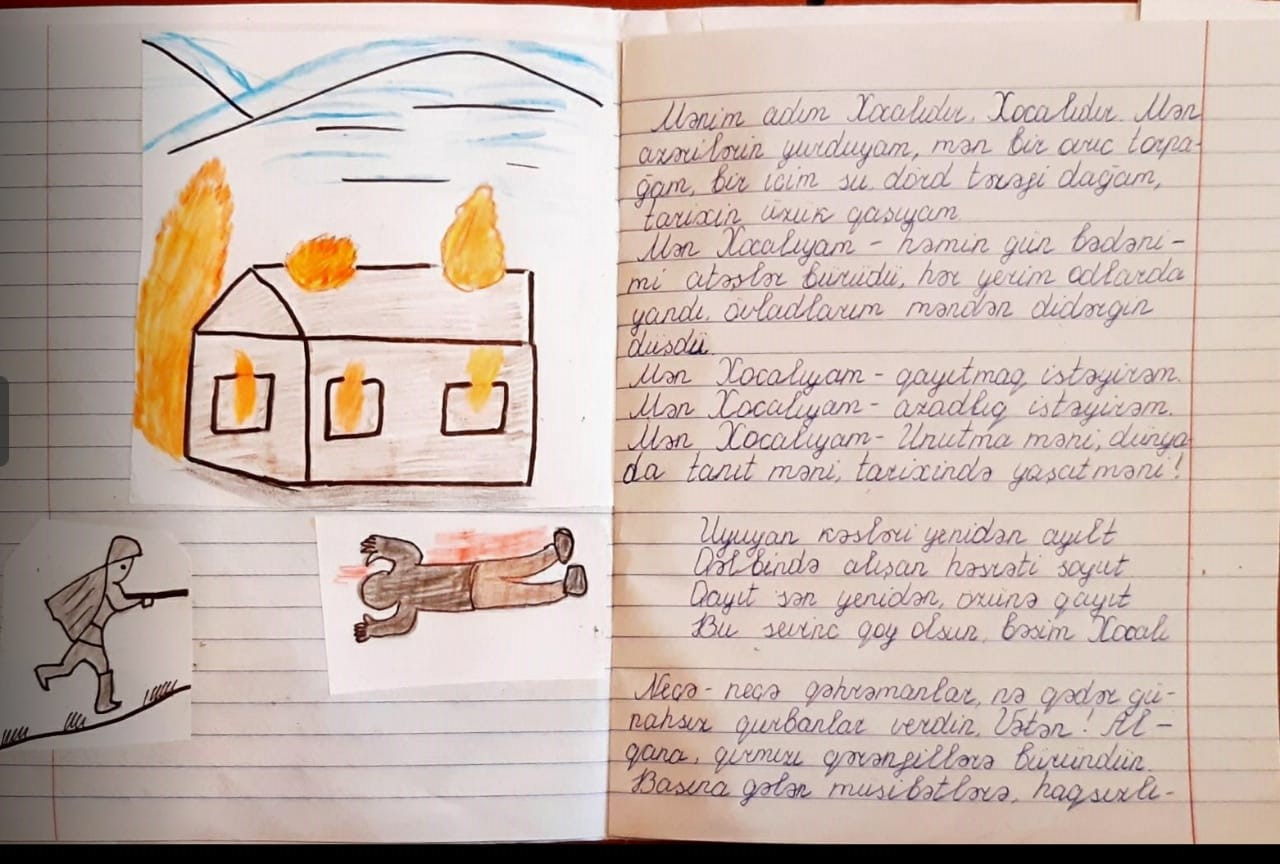 Mənim adım Xocalıdır, Xocalıdır. Mən
azərilərin yurduyam, mən bir ovuc torpa-
ğam, bir içim su, dörd tərəfi dağam,
tarixin üzük qaşıyam
Mən Xocalıyam - həmin gün bədəni-
mi atəşlər bürüdü, hər yerim odlarda
yandı, övladlarım məndən didərgin
düşdü.
Mən Xocalıyam - qayıtmaq istəyirəm.
Mən Xocalıyam - azadlıq istəyirəm.
Mən Xocalıyam - Unutma məni, dünya-
da tanıt məni, tarixində yaşat məni!
Uyuyan kəsləri yenidən ayılt
Qəlbində alışan həsrəti soyut
Qayıt sən yenidən, özünə qayıt
Bu sevinc qoy olsun, bəsim Xocalı
Neçə-neçə qəhrəmanlar, nə qədər gü-
nahsız qurbanlar verdin, Vətən! Al-
qana, qırmızı qərənfillərə büründün.
Başına gələn müsibətlərə, haqsızlı-